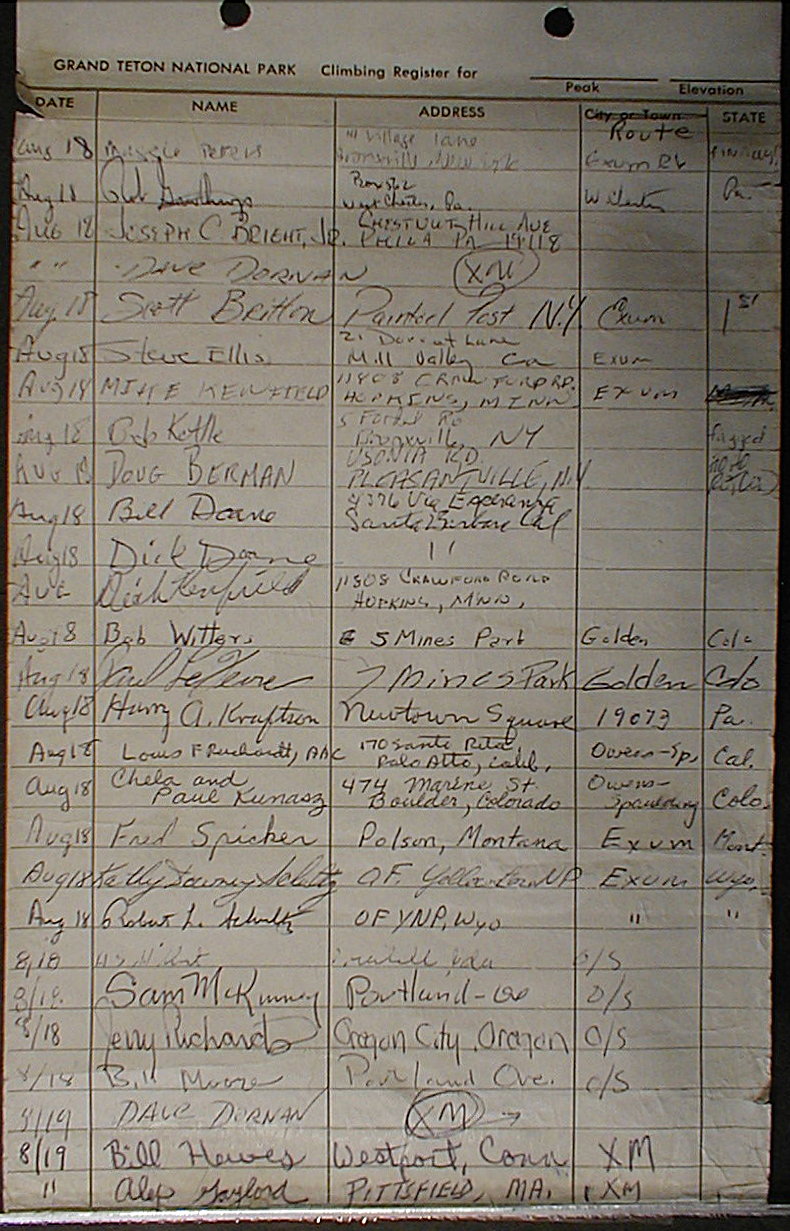 GRAND TETON NATIONAL PARK Climbing Register for
Peak Elevation
DATE NAME ADDRESS City or Town STATE
Route
111 Village Lane
Aug 18 Maggie Bronxville, New York Exum
Box 562
Aug 18 West Chester, Pa. Pa.
CHESTNUT HILL AVE
AUG 18 JOSEPH C. BRIGHT, JR. PHILA PA 19118
" " DAVE DORNAN XM
Aug 18 Scott Britton Painted Post N.Y. Exum 1st
21 Lane
Aug 18 Steve Ellis Mill Valley Ca Exum
11808 CRAWFORD RD.
Aug 18 MIKE KENFIELD HOPKINS, MINN EXUM
5 Rd
Aug 18 Bob Kottle Bronxville, NY
USONIA RD.
AUG 18 DOUG BERMAN PLEASANTVILLE, N.Y.
4376 Via Esperanza
Aug 18 Bill Doane Santa Barbara Cal
Aug 18 Dick Doane "
11808 CRAWFORD ROAD
AUG Dick Kenfield HOPKINS, MINN,
Aug 18 Bob Witters 5 Mines Park Golden Colo
Aug 18 Paul LeFevre 7 Mines Park Golden Colo
Aug 18 Harry A. Kraftson Newtown Square 19073 Pa.
170 Santa Rita
Aug 18 Louis F Reichardt, AAC Palo Alto, Calif. Owens-Sp. Cal.
Chela and 474 Marine St. Owens-
Aug 18 Paul Kunasz Boulder, Colorado Spaulding Colo.
Aug 18 Fred Spicker Polson, Montana Exum Mont.
Aug 18 Kathy Downey Schultz OF Yellowstone NP Exum Wyo.
Aug 18 Robert L. Schultz OF YNP, Wyo " "
8/18 O/S
8/18 Sam McKinney Portland-Ore O/S
8/18 Jerry Richards Oregon City, Oregon O/S
8/18 Bill Moore Portland Ore. O/S
8/19 DAVE DORNAN XM →
8/19 Bill Hewes Westport, Conn XM
" Alex Gaylord PITTSFIELD, MA. XM